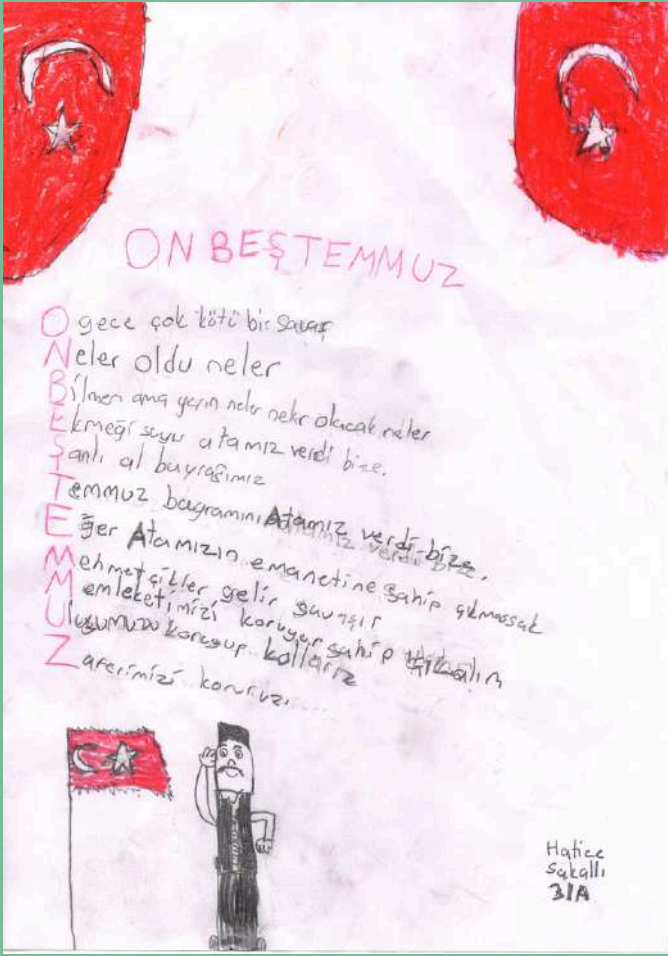 ON BEŞ TEMMUZ
O gece çok kötü bir savaş
Neler oldu neler
Bilmem ama yarın neler neler olacak neler
Ekmeği suyu atamız verdi bize.
Şanlı al bayrağımız
Temmuz bayramını Atamız verdi bize.
Eğer Atamızın emanetine sahip çıkmassak
Mehmetçikler gelir savaşır
Memleketimizi koruyup sahip çıkalım
Ulusumuzu koruyup kollarız
Zaferimizi koruruz....
Hatice
Sakallı
3/A